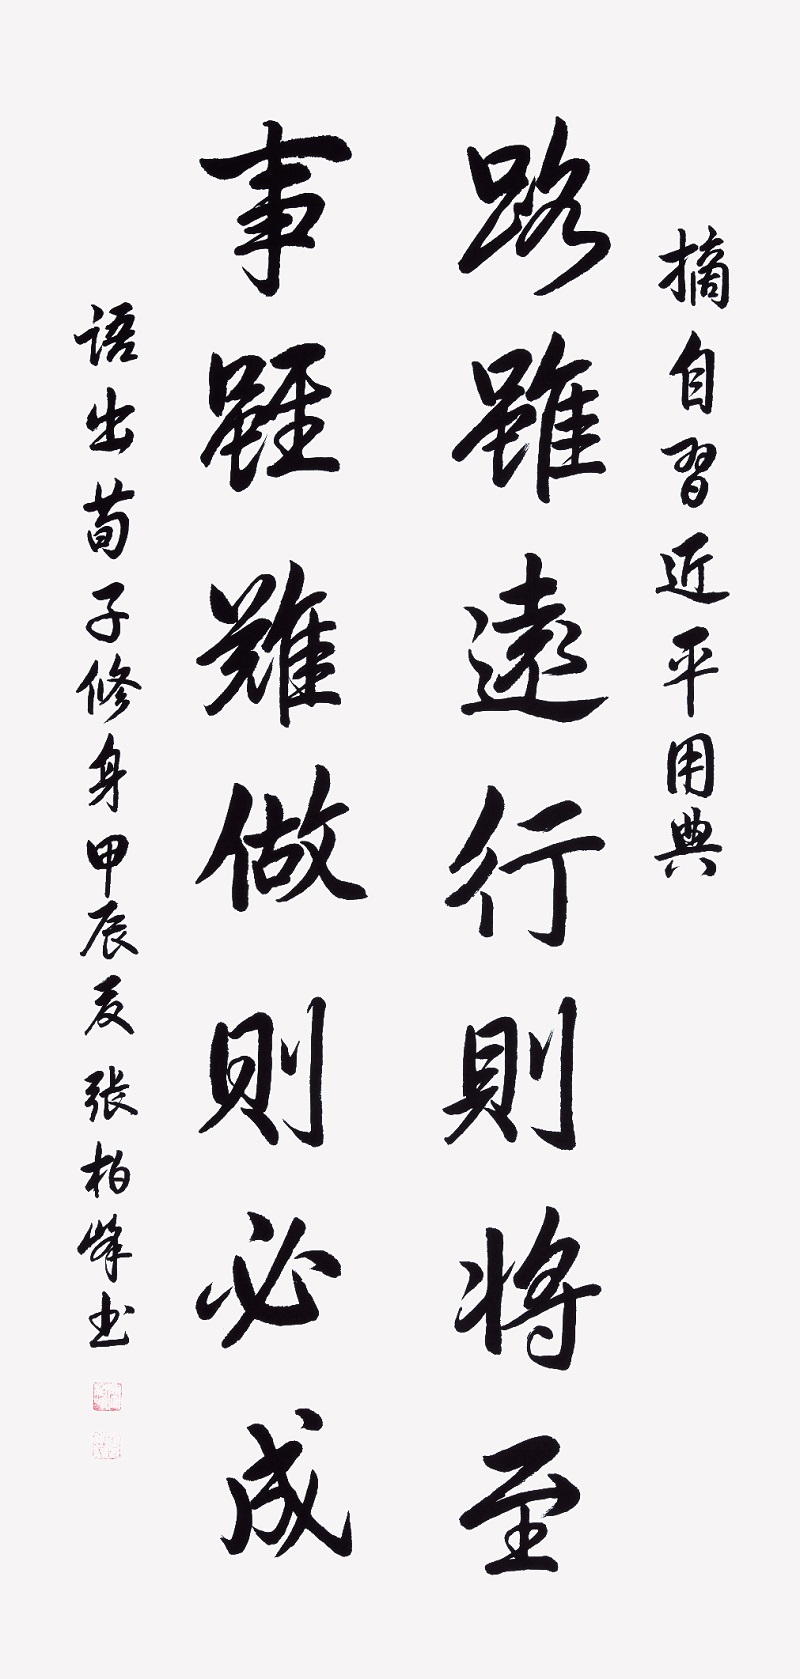 摘自習近平用典
路雖遠行則將至
事雖難做則必成
语出荀子修身甲辰夏張柏峰书